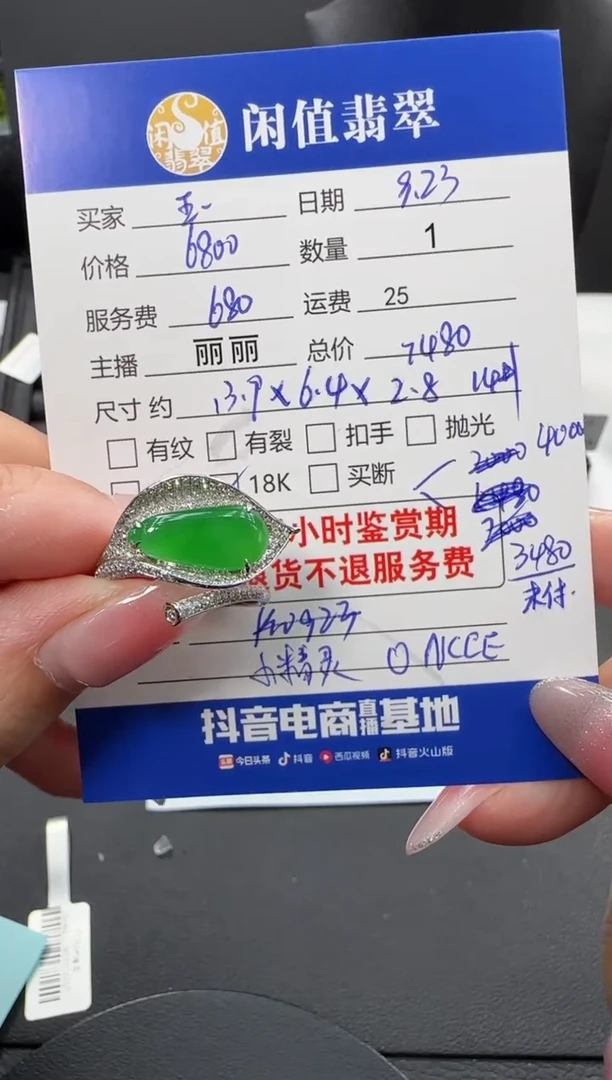 闲值翡翠
闲值翡翠
买家 日期 9.23
价格 6800 数量 1
服务费 680 运费 25
主播 丽丽 总价 7480
尺寸 约 13.9×6.4×2.8
有纹 有裂 扣手 抛光
18K 买断
4000
小时鉴赏期
退货不退服务费
3480
未付.
小精灵 ONCCE
抖音电商直播基地
头条 今日头条 抖音 西瓜视频 抖音火山版